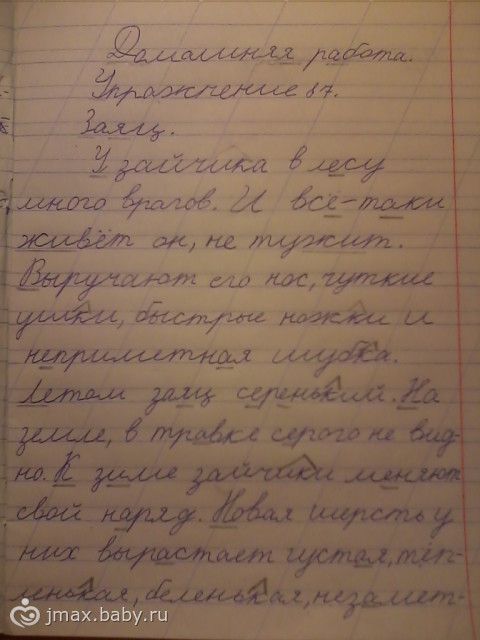 Домашняя работа.
Упражнение 87.
Заяц.
У зайчика в лесу
много врагов. И всё-таки
живёт он, не тужит.
Выручают его нос, чуткие
ушки, быстрые ножки и
неприметная шубка.
Летом заяц серенький. На
земле, в травке серого не вид-
но. К зиме зайчики меняют
свой наряд. Новая шерсть у
них вырастает густая, теп-
ленькая, беленькая, незамет-
jmax.baby.ru